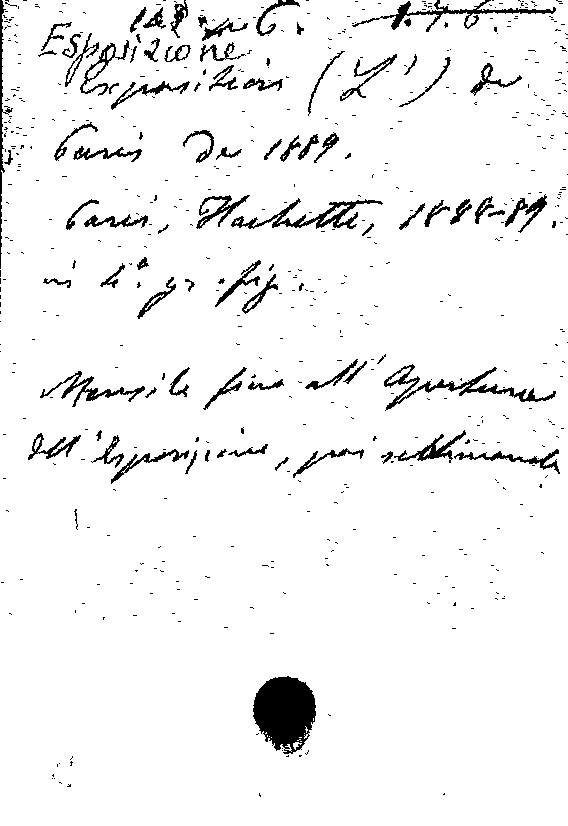 1.7.6.
Esposizione
Exposition (L') de
Paris de 1889.
Paris, Hachette, 1888-89.
in 4.° gr. fig.
Mensile fino all'apertura
dell'Esposizione, poi settimanale